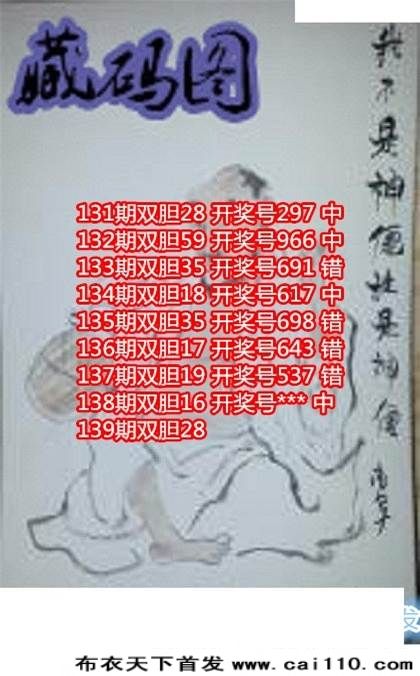 藏码图
我不是神仙
131期双胆28 开奖号297 中
132期双胆59 开奖号966 中
133期双胆35 开奖号691 错
134期双胆18 开奖号617 中
135期双胆35 开奖号698 错
136期双胆17 开奖号643 错
137期双胆19 开奖号537 错
138期双胆16 开奖号*** 中
139期双胆28
布衣天下首发 www.cai110.com